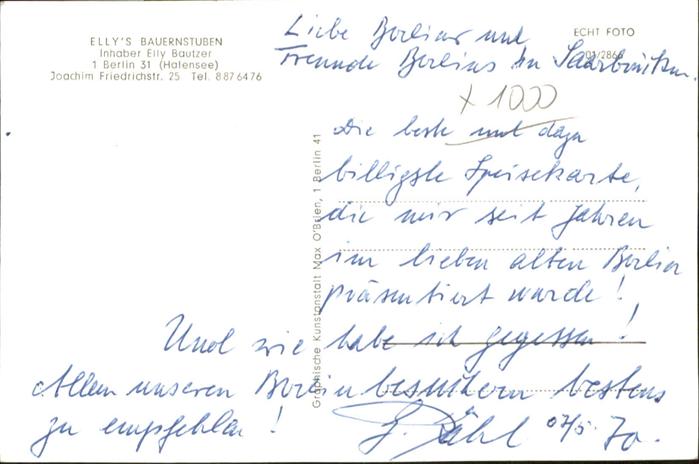 ELLY'S BAUERNSTUBEN
Inhaber Elly Bautzer
1 Berlin 31 (Halensee)
Joachim Friedrichstr. 25 Tel. 8876476
ECHT FOTO
201/2866
Graphische Kunstanstalt Max O'Brien, 1 Berlin 41
Liebe Berliner und
Freunde Berlins in Saarbrücken.
x 1000
Die beste und dazu
billigste Speisekarte,
die mir seit Jahren
im lieben alten Berlin
präsentiert wurde!
Und wie habe ich gegessen!
Allen unseren Berlinbesuchern bestens
zu empfehlen!
70.